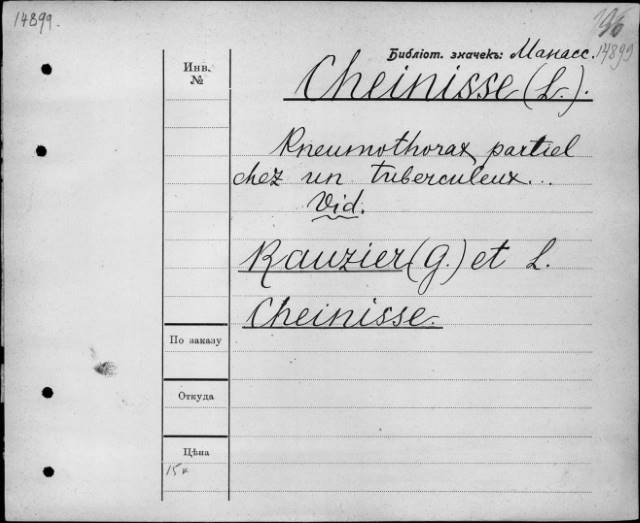 14899.
196
Библіот. значекъ: Манасс.
14899
Инв.
№
Cheinisse (L.).
Pneumothorax partiel
chez un tuberculeux...
Vid.
Rauzier (G.) et L.
Cheinisse.
По заказу
Откуда
Цѣна
15к